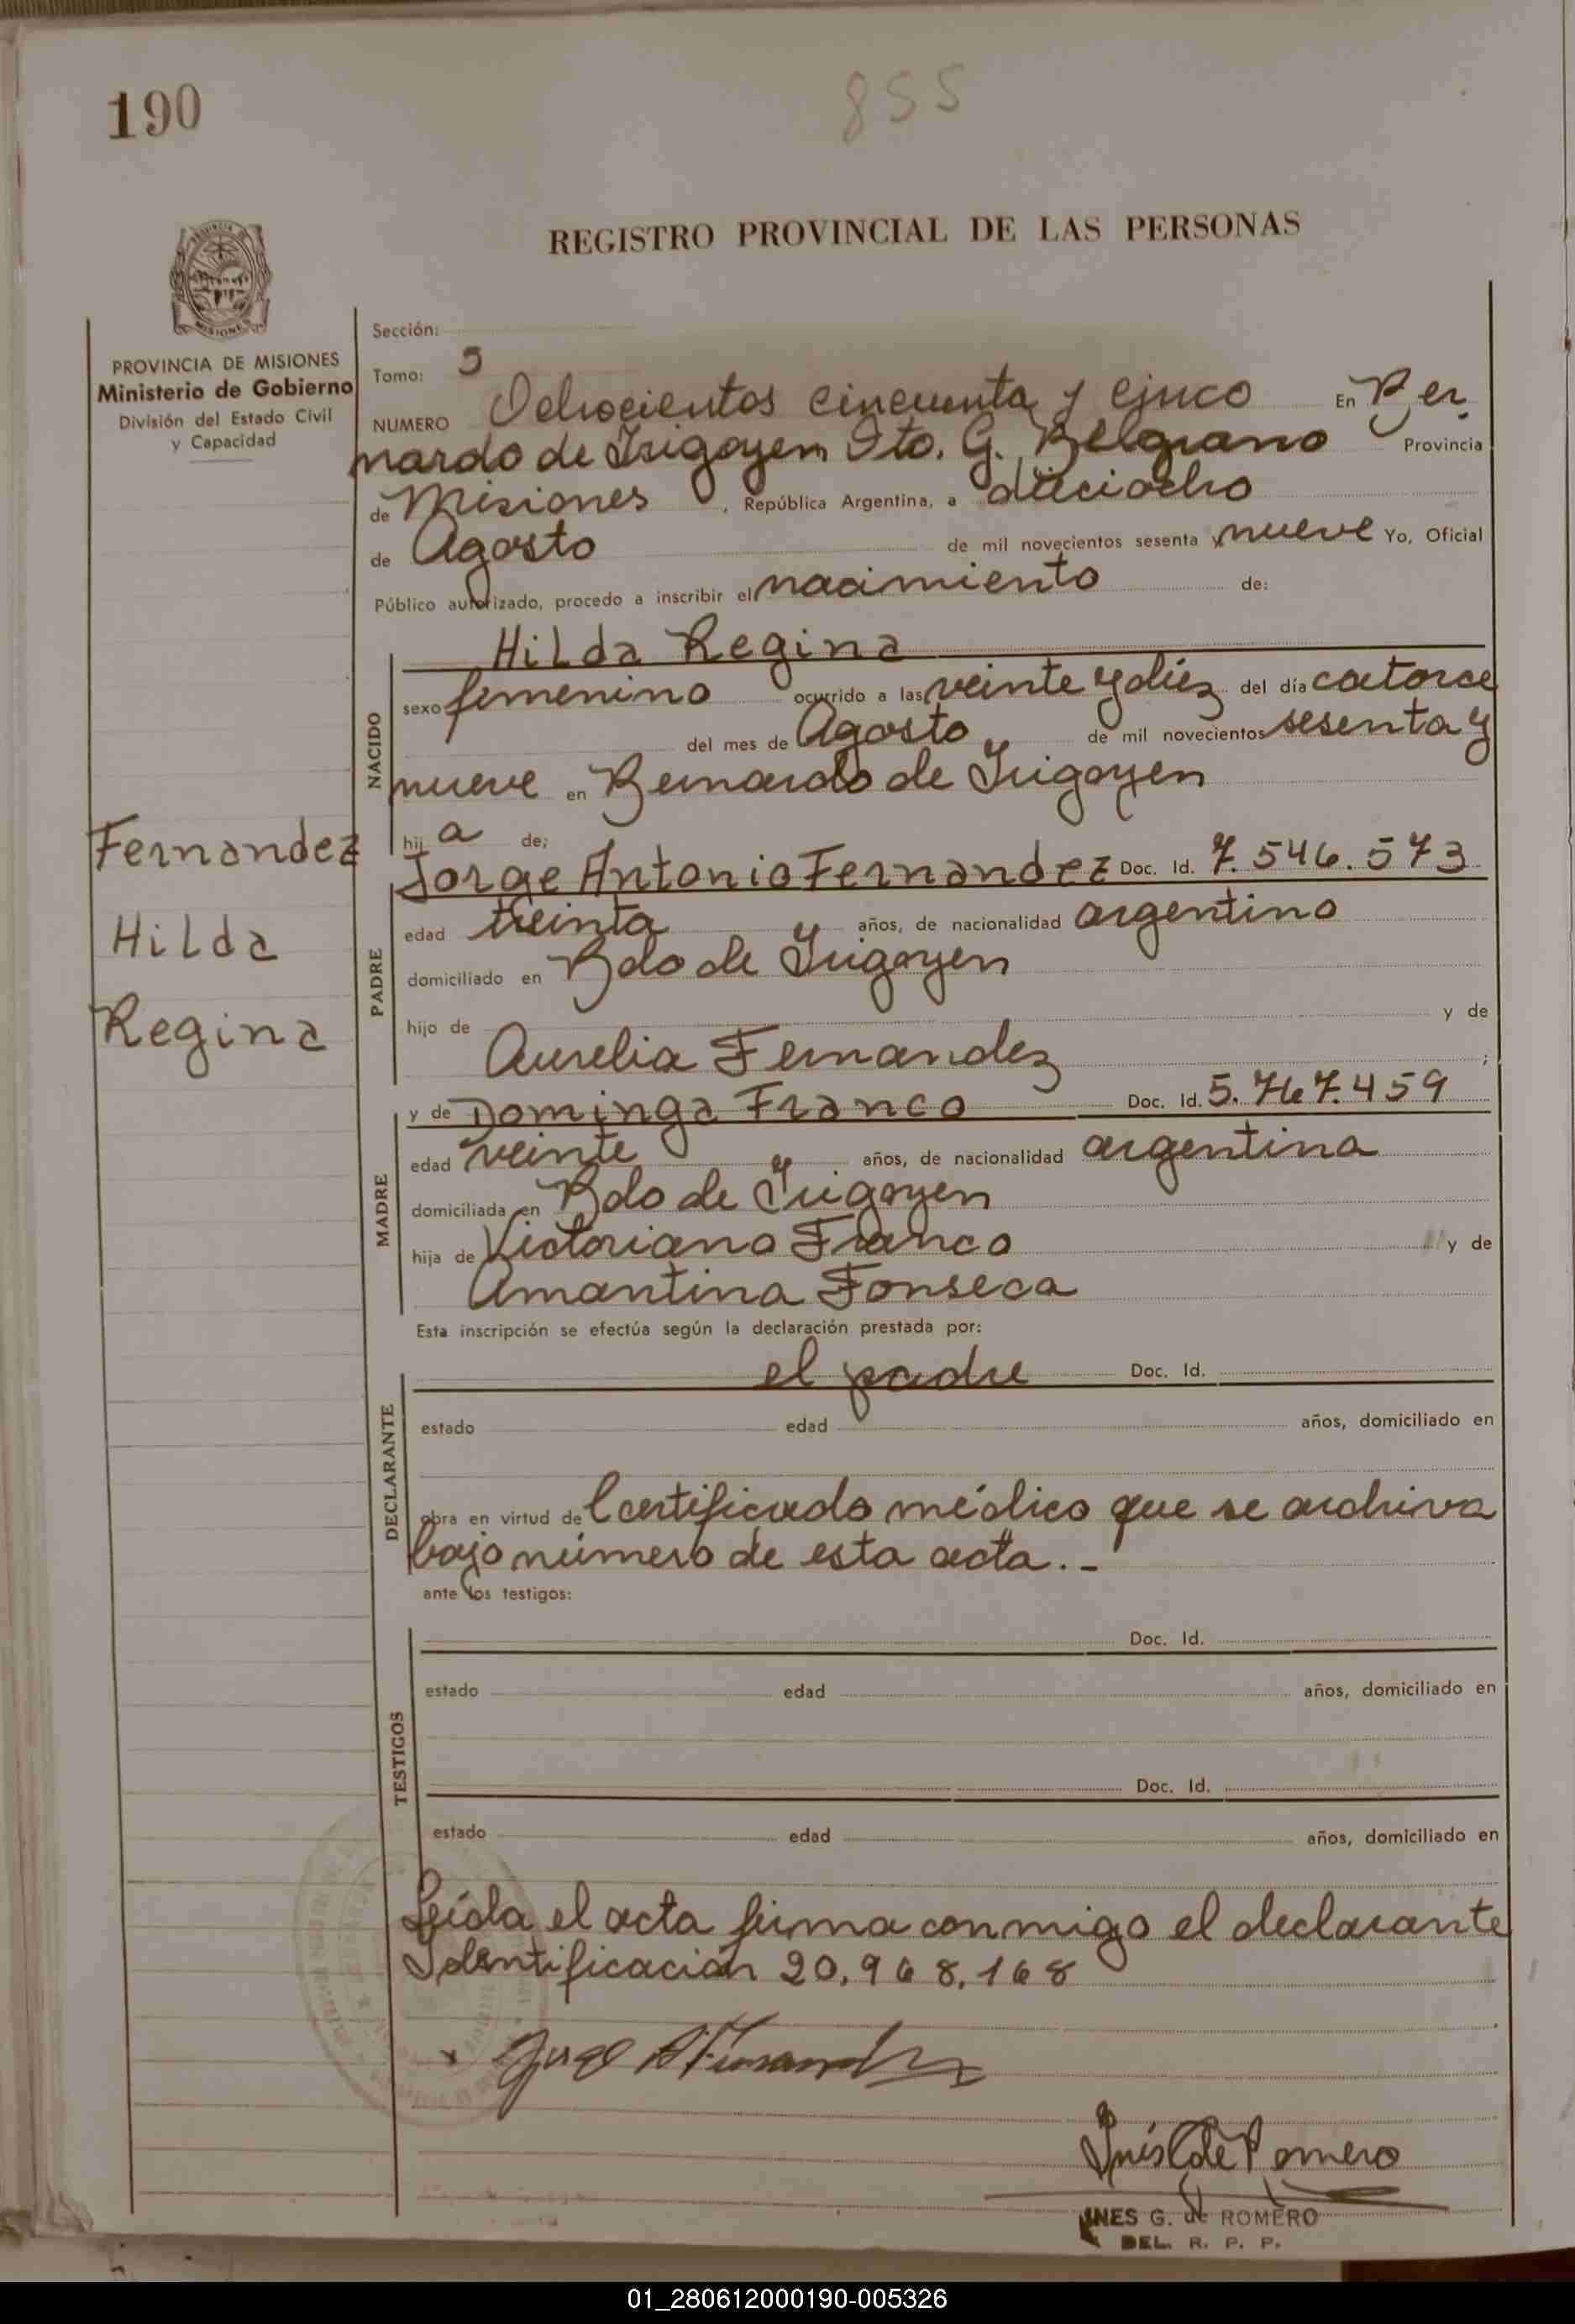 190
855
REGISTRO PROVINCIAL DE LAS PERSONAS
PROVINCIA DE MISIONES
Ministerio de Gobierno
División del Estado Civil
y Capacidad
Sección:
Tomo: 5
NUMERO Ochocientos cincuenta y cinco En Ber
nardo de Irigoyen Dto. G. Belgrano Provincia
de Misiones, República Argentina, a dieciocho
de Agosto de mil novecientos sesenta y nueve Yo, Oficial
Público autorizado, procedo a inscribir el nacimiento de:
Hilda Regina
NACIDO
sexo femenino ocurrido a las veinte y diez del día catorce
del mes de Agosto de mil novecientos sesenta y
nueve en Bernardo de Irigoyen
hija de;
Fernandez
Hilda
Regina
Jorge Antonio Fernandez Doc. Id. 7.546.573
PADRE
edad treinta años, de nacionalidad argentino
domiciliado en Bdo de Irigoyen
hijo de y de
Aurelia Fernandez ;
y de Dominga Franco Doc. Id. 5.767.459
MADRE
edad veinte años, de nacionalidad argentina
domiciliada en Bdo de Irigoyen
hija de Victoriano Franco y de
Amantina Fonseca
Esta inscripción se efectúa según la declaración prestada por:
el padre Doc. Id.
DECLARANTE
estado edad años, domiciliado en
obra en virtud de Certificado médico que se archiva
bajo número de esta acta.-
ante los testigos:
Doc. Id.
TESTIGOS
estado edad años, domiciliado en
Doc. Id.
estado edad años, domiciliado en
Leída el acta firma conmigo el declarante
Identificación 20.968.168
Jorge A Fernandez
Inés G de Romero
INES G. de ROMERO
DEL. R. P. P.
01_280612000190-005326